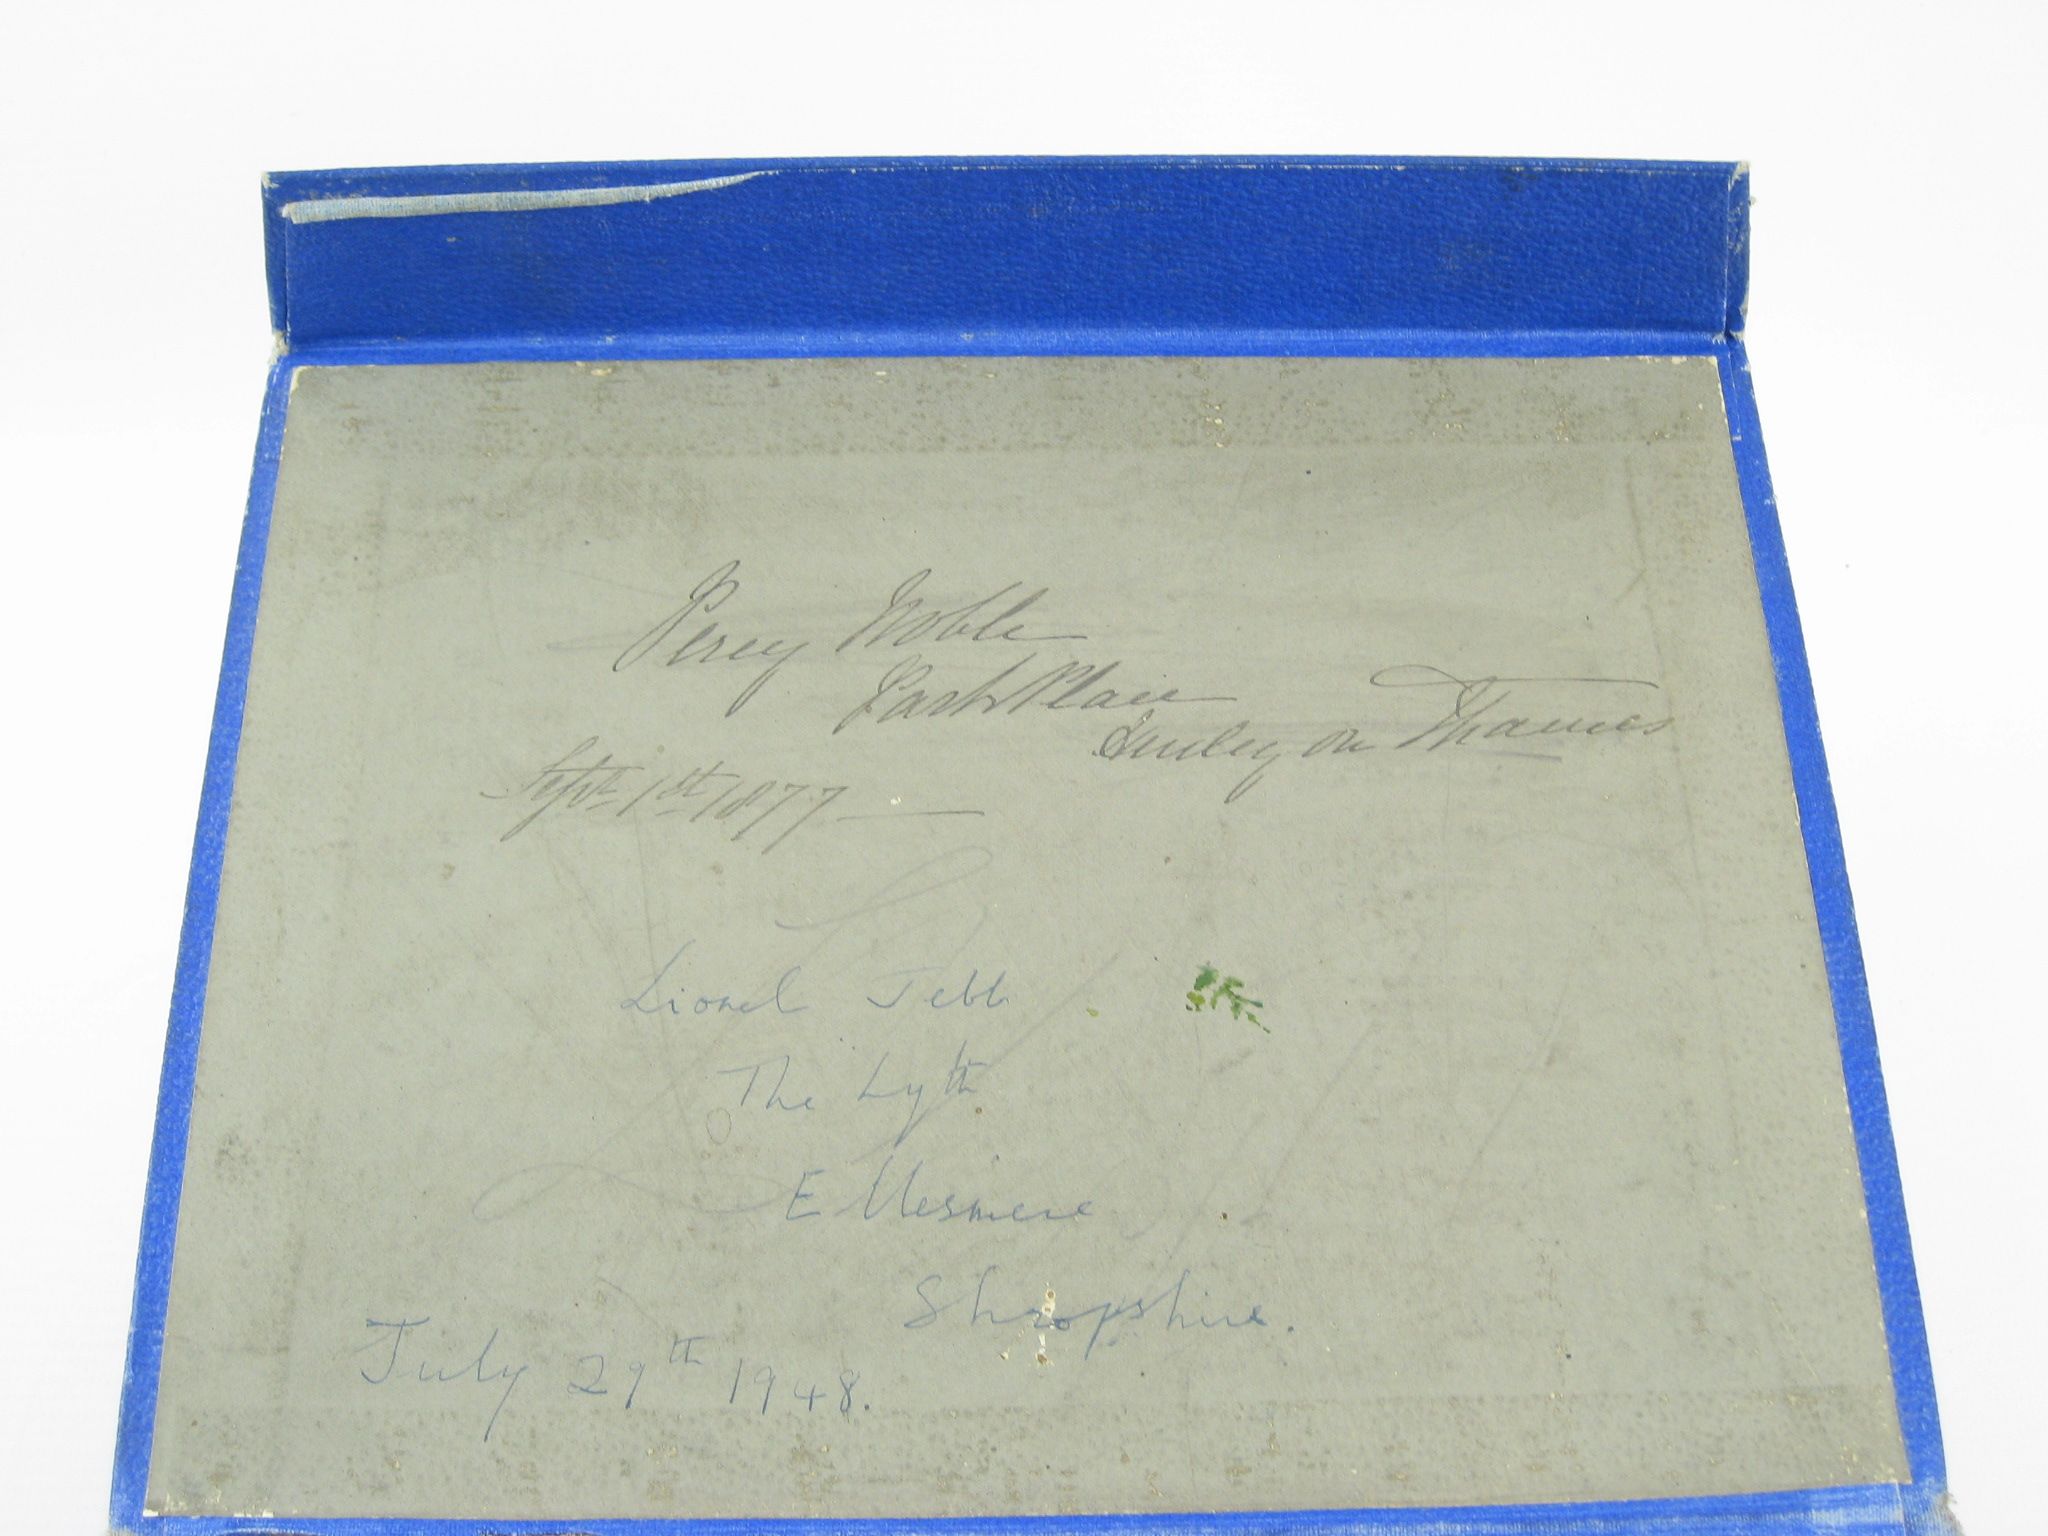 Percy Noble
Park Place
Henley on Thames
Sept 1st 1877
Lionel Jebb
The Lyth
Ellesmere
Shropshire.
July 29th 1948.